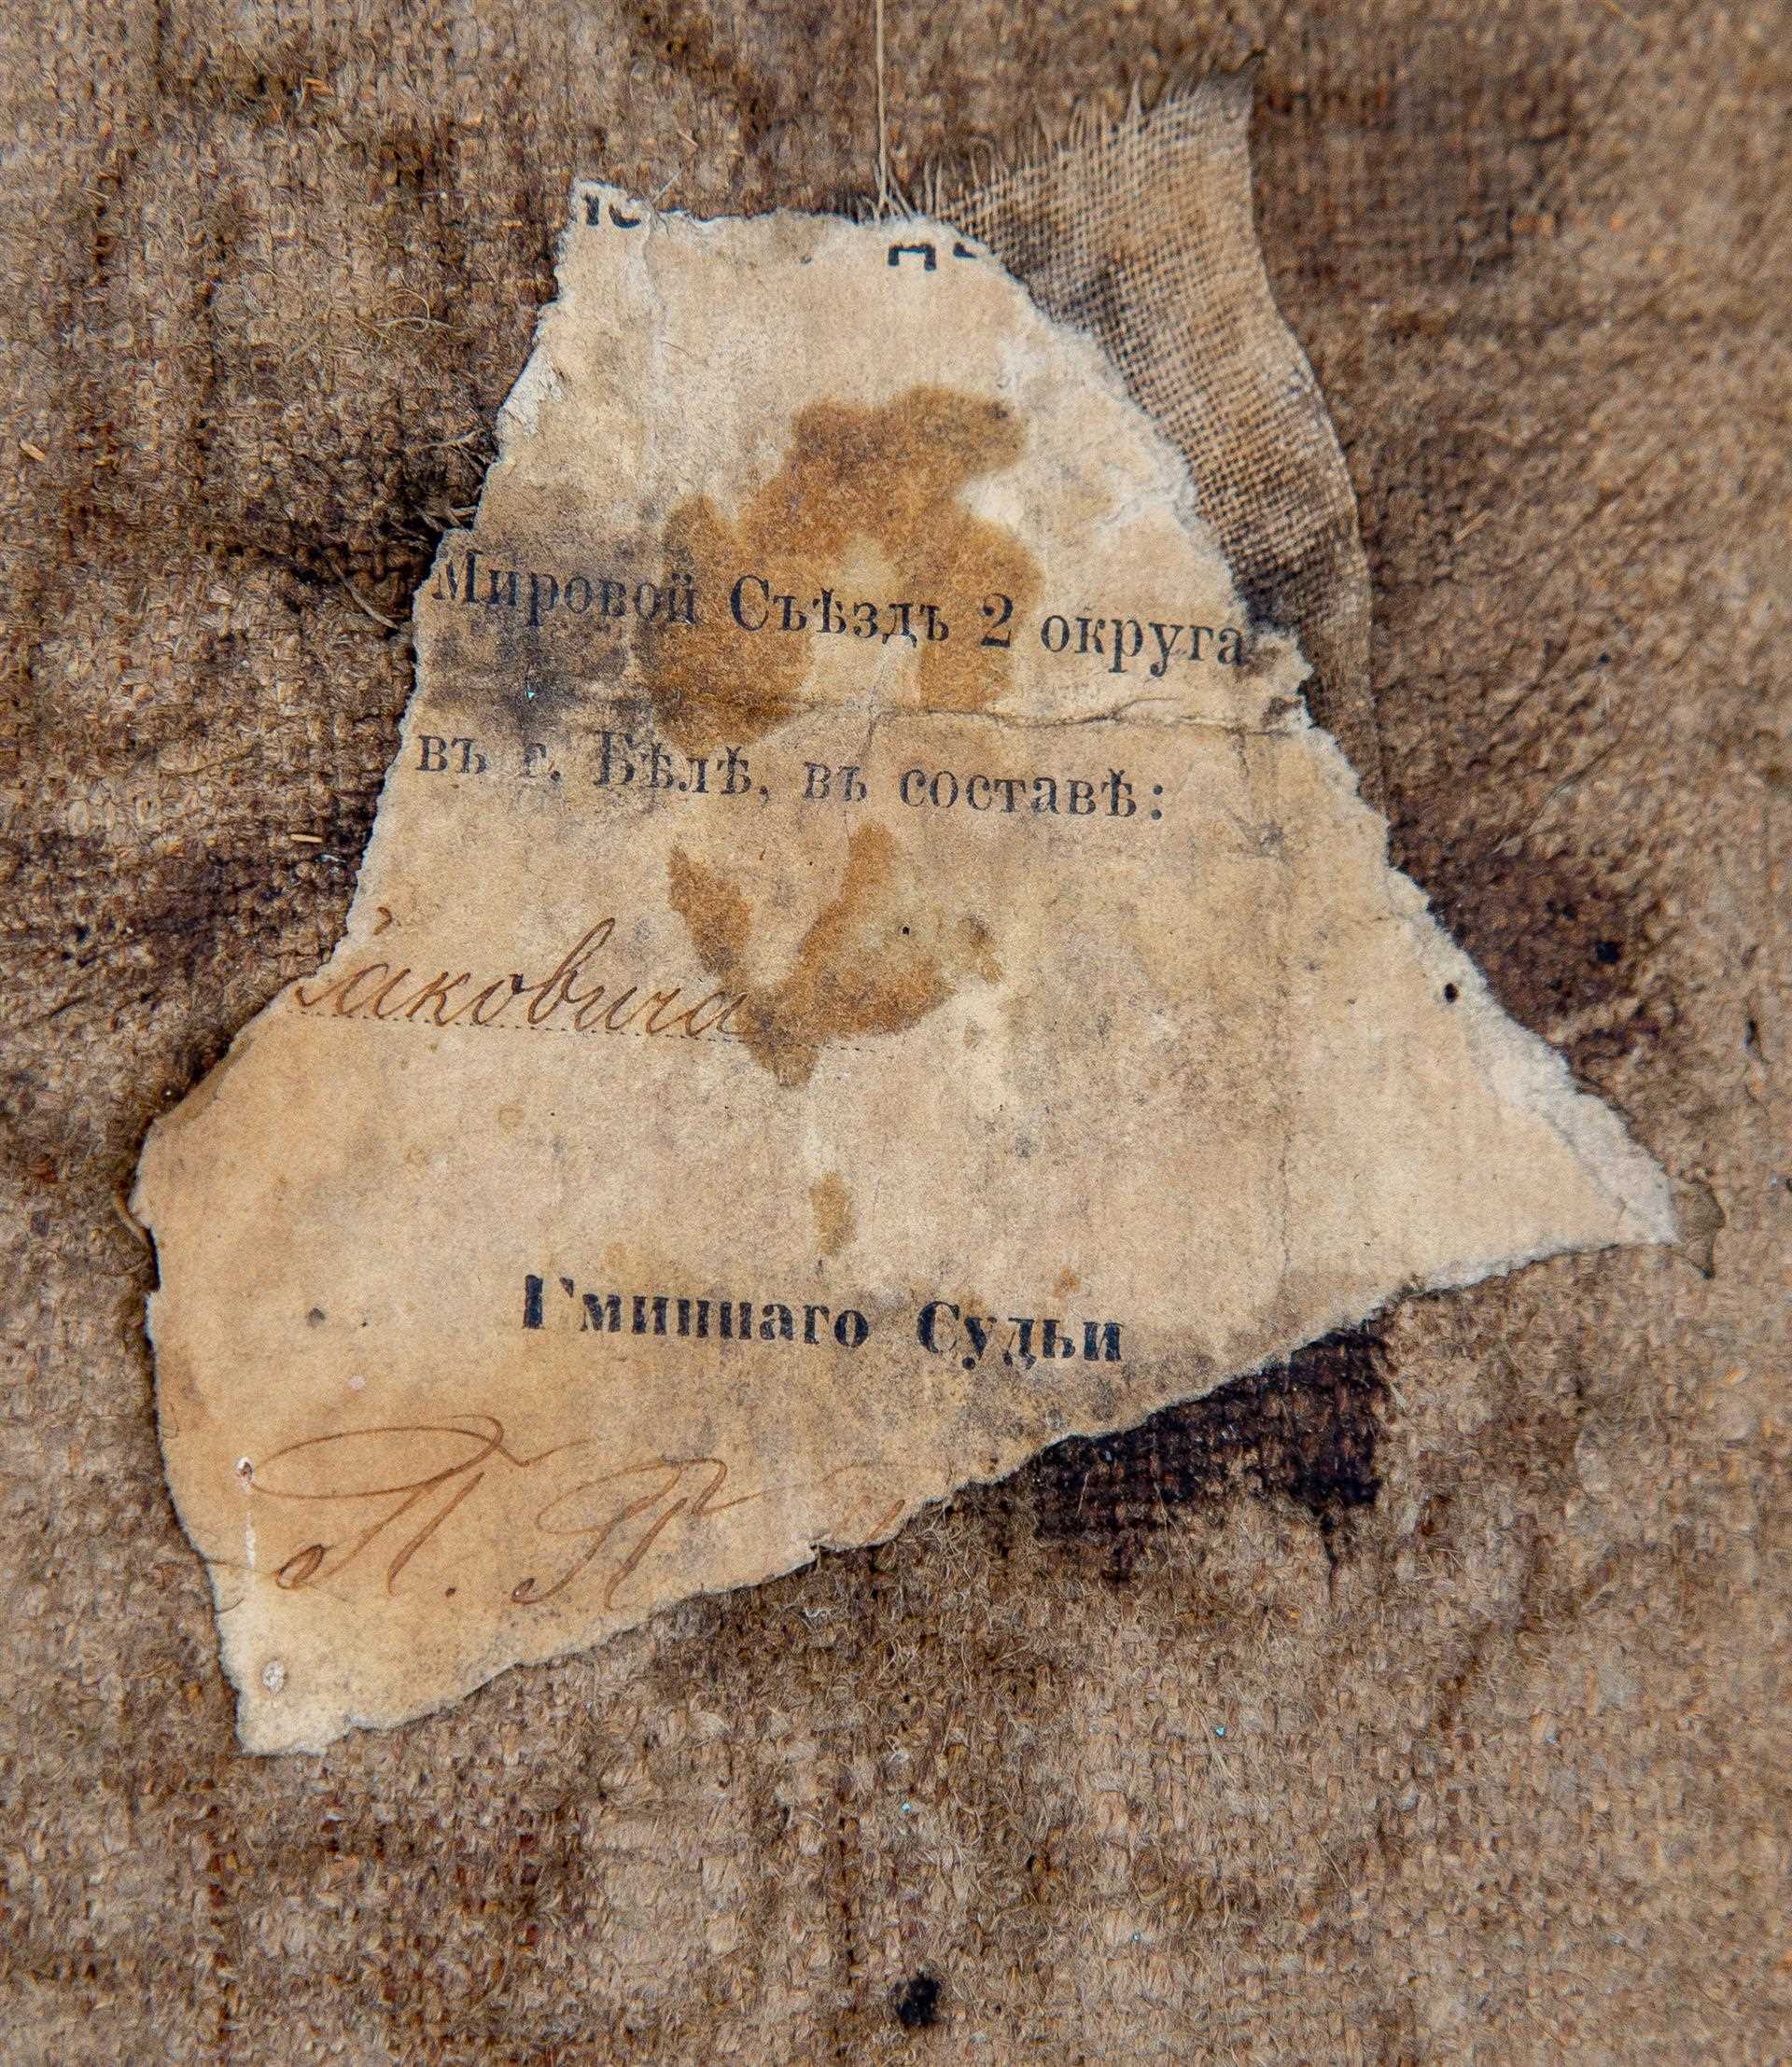 Мировой Съѣздъ 2 округа
въ г. Бѣлѣ, въ составѣ:
аковича
Гминнаго Судьи
П. П